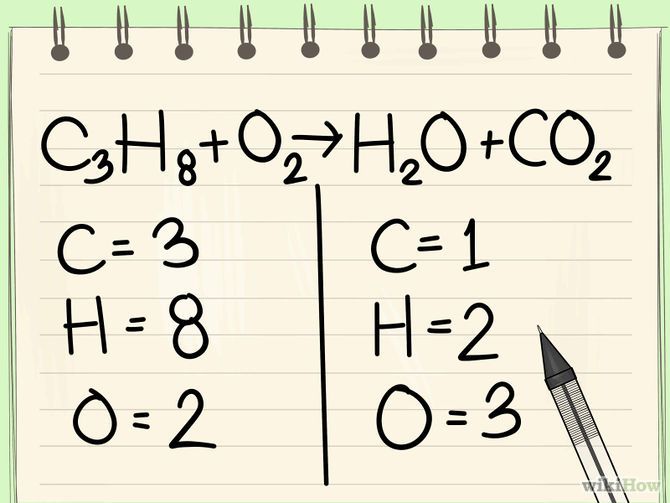 C₃H₈+O₂→H₂O+CO₂
C=3
H=8
O=2
C=1
H=2
O=3
wikiHow